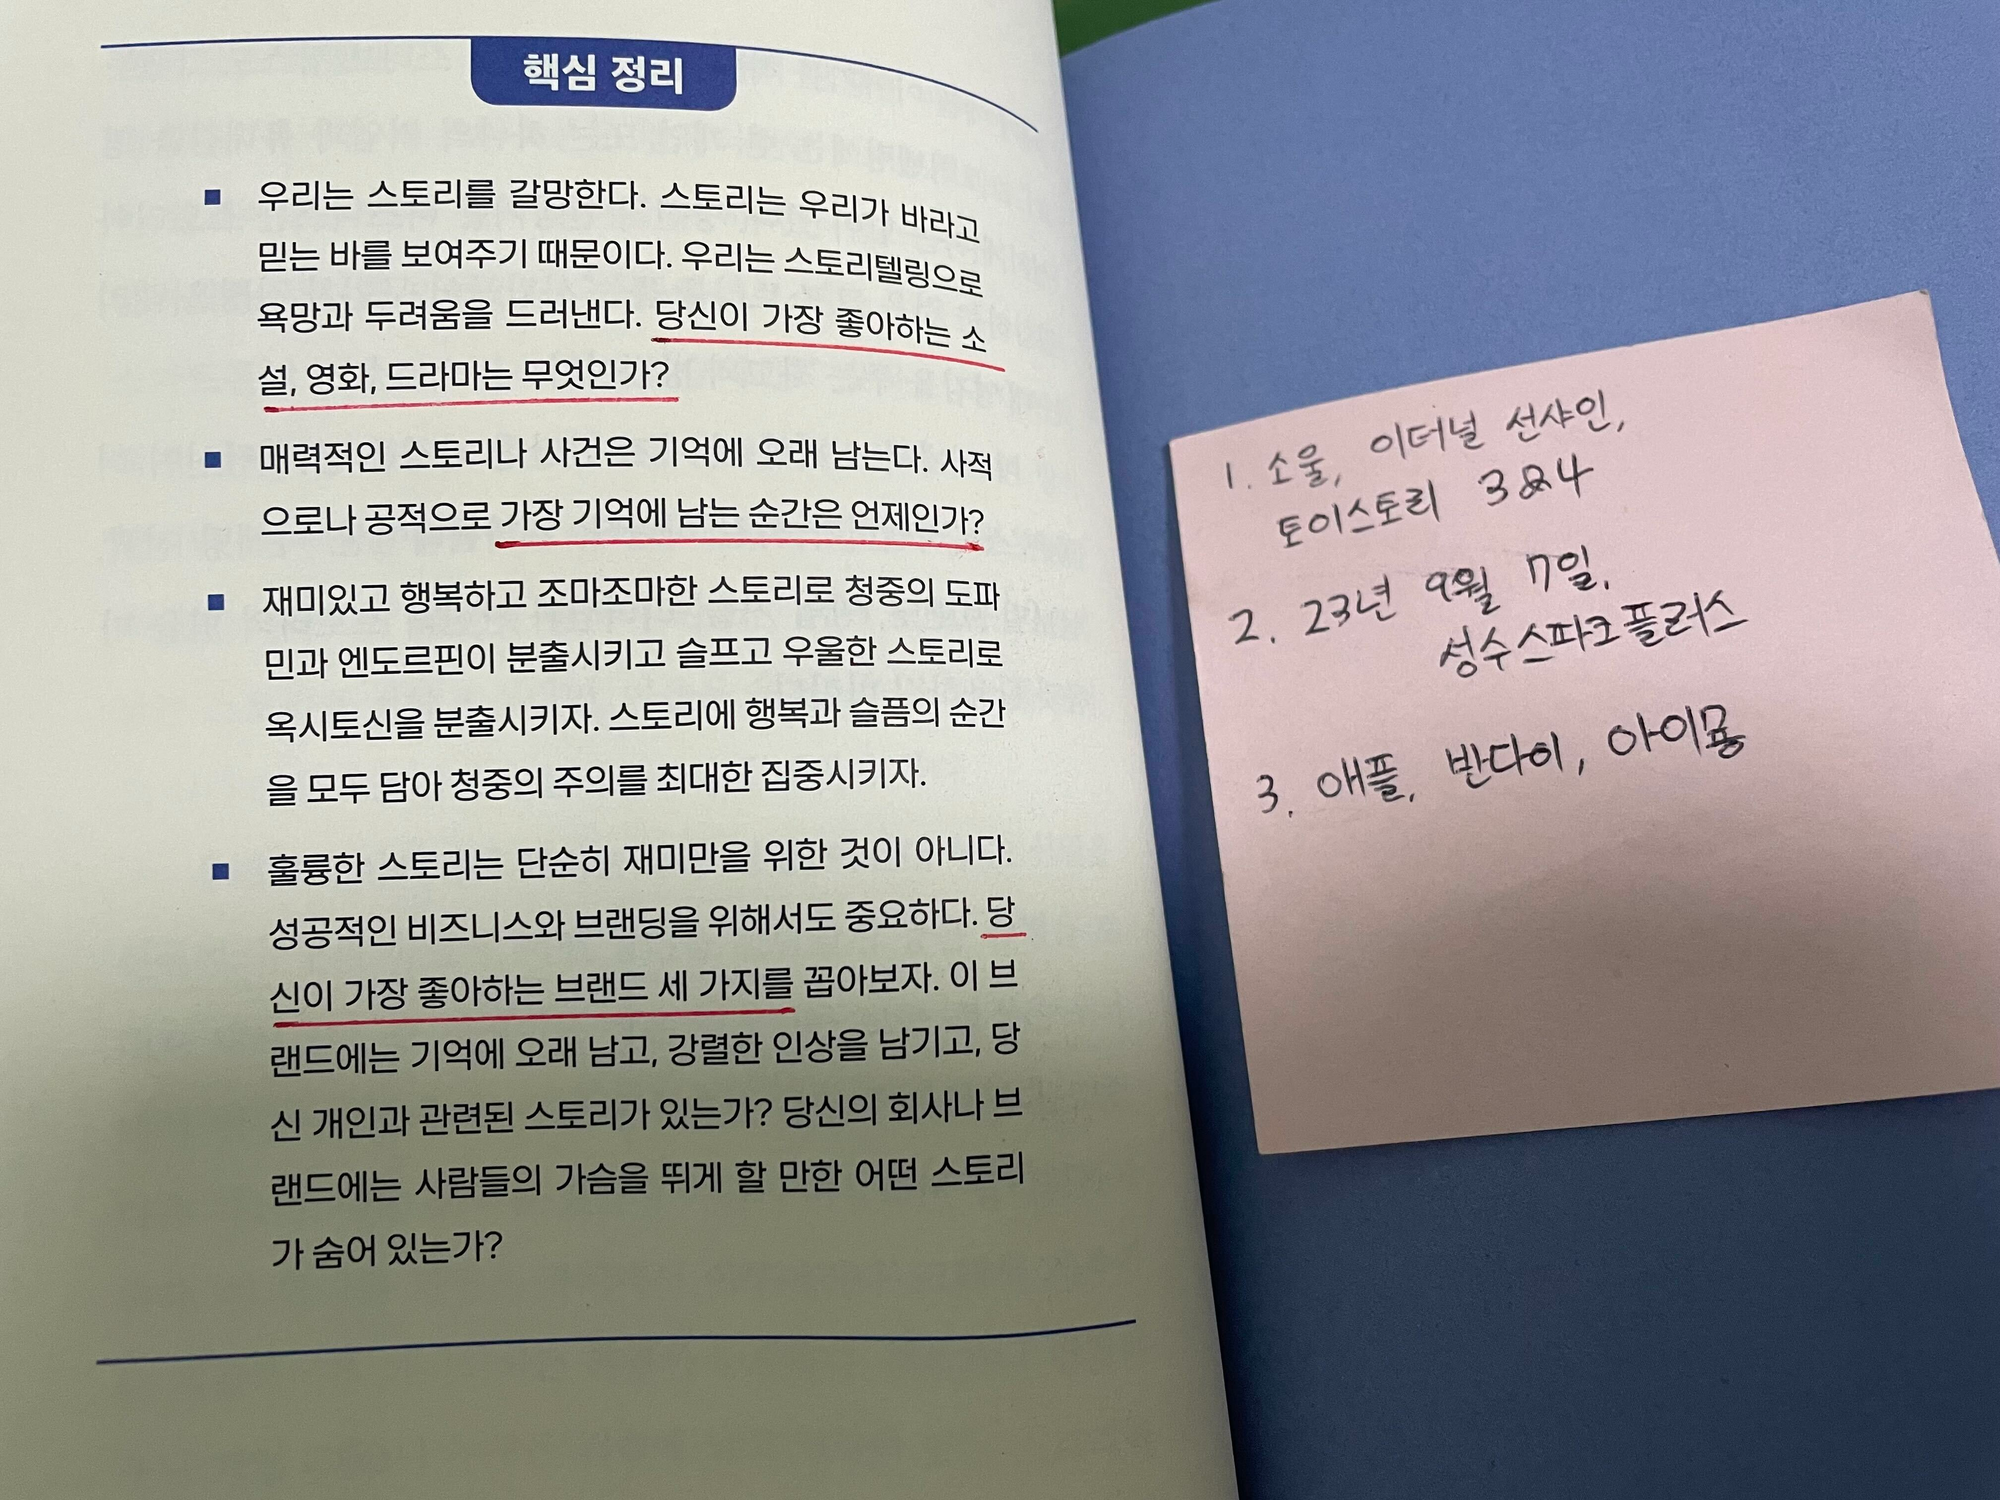 핵심 정리
■ 우리는 스토리를 갈망한다. 스토리는 우리가 바라고
믿는 바를 보여주기 때문이다. 우리는 스토리텔링으로
욕망과 두려움을 드러낸다. 당신이 가장 좋아하는 소
설, 영화, 드라마는 무엇인가?
■ 매력적인 스토리나 사건은 기억에 오래 남는다. 사적
으로나 공적으로 가장 기억에 남는 순간은 언제인가?
■ 재미있고 행복하고 조마조마한 스토리로 청중의 도파
민과 엔도르핀이 분출시키고 슬프고 우울한 스토리로
옥시토신을 분출시키자. 스토리에 행복과 슬픔의 순간
을 모두 담아 청중의 주의를 최대한 집중시키자.
■ 훌륭한 스토리는 단순히 재미만을 위한 것이 아니다.
성공적인 비즈니스와 브랜딩을 위해서도 중요하다. 당
신이 가장 좋아하는 브랜드 세 가지를 꼽아보자. 이 브
랜드에는 기억에 오래 남고, 강렬한 인상을 남기고, 당
신 개인과 관련된 스토리가 있는가? 당신의 회사나 브
랜드에는 사람들의 가슴을 뛰게 할 만한 어떤 스토리
가 숨어 있는가?
1. 소울, 이터널 선샤인,
토이스토리 3&4
2. 23년 9월 7일,
성수스파크플러스
3. 애플, 반다이, 아이묭